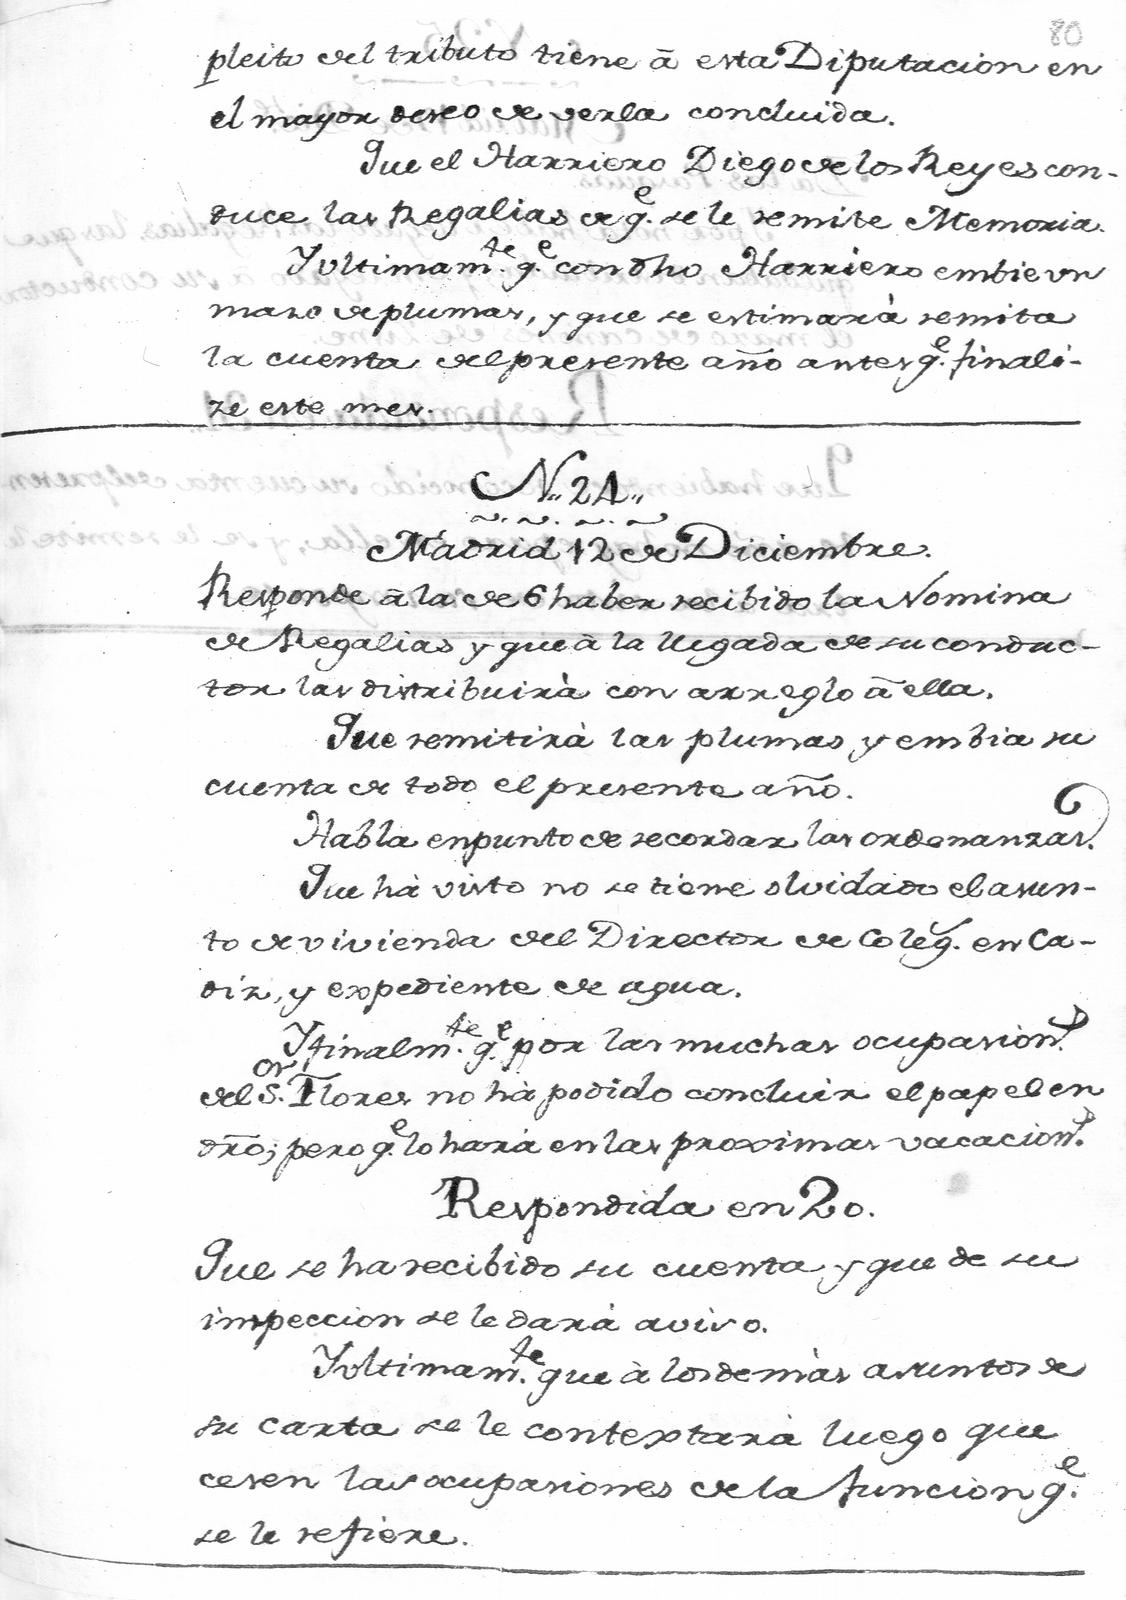 80
pleito del tributo tiene â esta Diputacion en
el mayor deseo de verla concluida.
Que el Harriero Diego de los Reyes con-
duce las Regalias de q.e se le remite Memoria.
Y ultimam.te q.e con dho Harriero embie un
mazo de plumas, y que se estimarà remita
la cuenta del presente año antes q.e finali-
ze este mes.
N.. 24..
Madrid 12 de Diciembre.
Responde â la de 6 haber recibido la Nomina
de Regalias y que â la llegada de su conduc-
tor las distribuirà con arreglo â ella.
Que remitirà las plumas y embia su
cuenta de todo el presente año.
Habla en punto de recordar las ordenanzas.
Que hà visto no se tiene olvidado el asun-
to de vivienda del Director de Coleg. en Ca-
diz, y expediente de agua.
Y finalm.te q.e por las muchas ocupasion.s
del S.or Flores no hà podido concluir el papel en
dro; pero q.e lo harà en las proximas vacacion.s
Respondida en 20.
Que se ha recibido su cuenta y que de su
inspeccion se le darà aviso.
Y ultimam.te que à los demàs asuntos de
su carta se le contextarà luego que
cesen las ocupasiones de la funcion q.e
se le refiere.